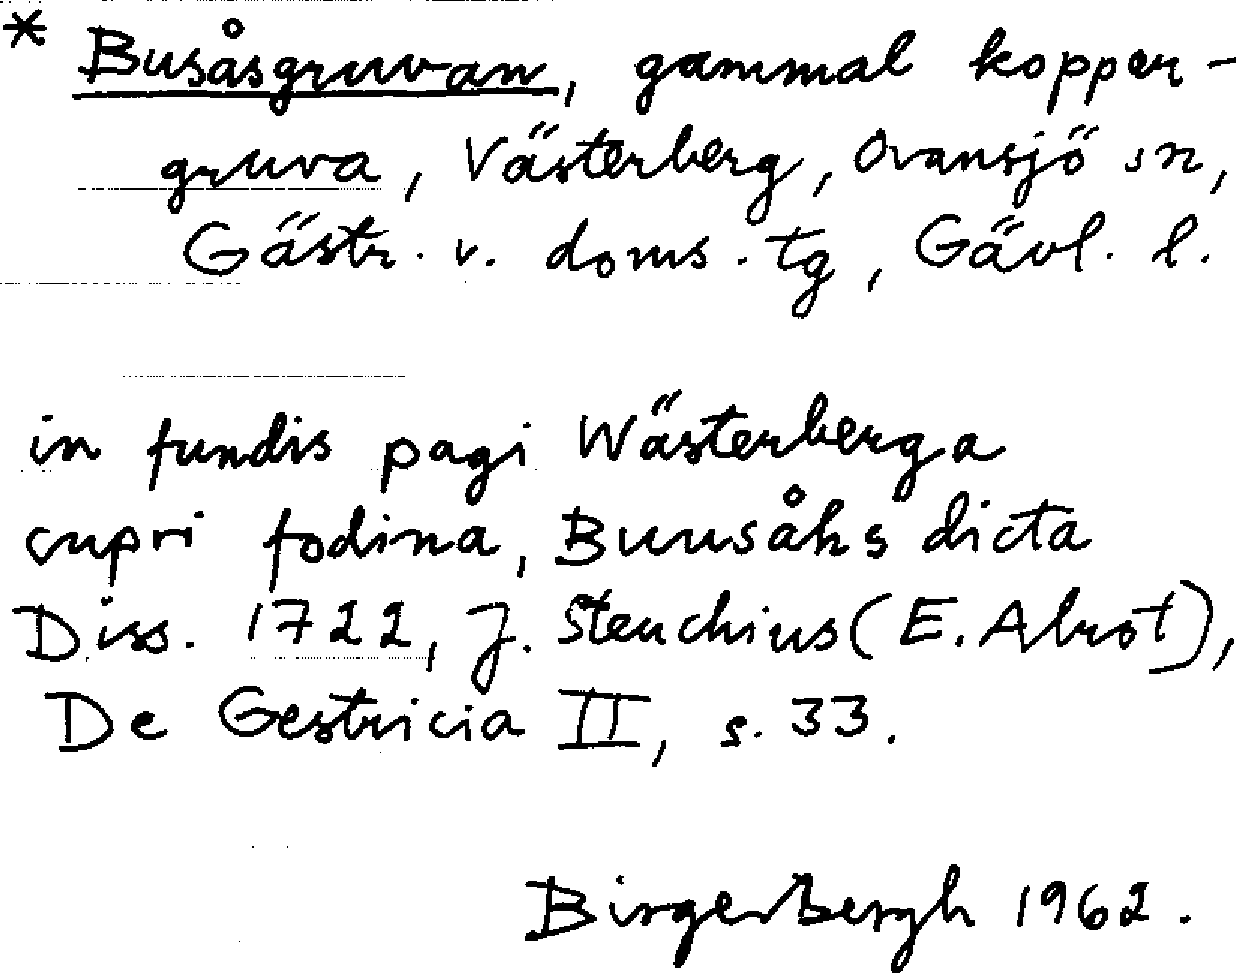 * Busåsgruvan, gammal koppar-
gruva, Västerberg, Ovansjö sn,
Gästr. v. doms. tg, Gävl. l.
in fundis pagi Wästerberga
cupri fodina, Buusåhs dicta
Diss. 1722, J. Steuchius (E. Alrot),
De Gestricia II, s. 33.
Birger Bergh 1962.